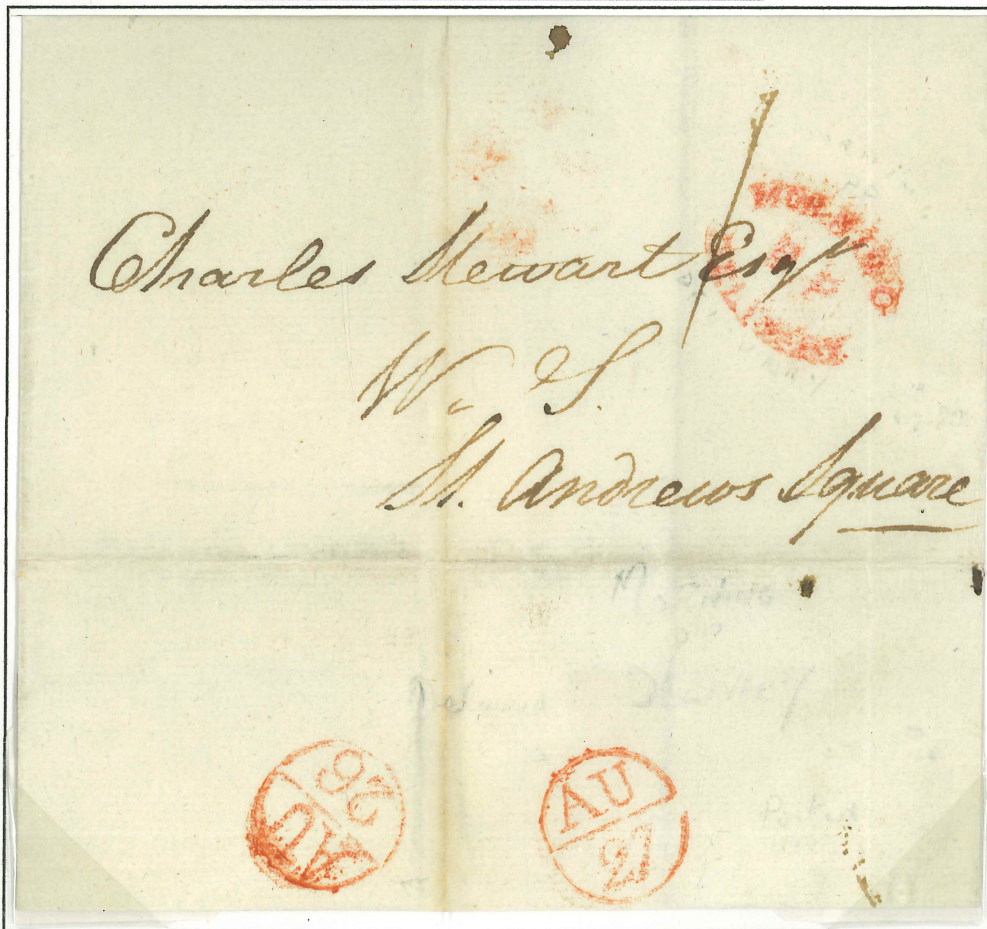 Charles Stewart Esqr
W. S.
St. Andrews Square
26
AU
AU
27